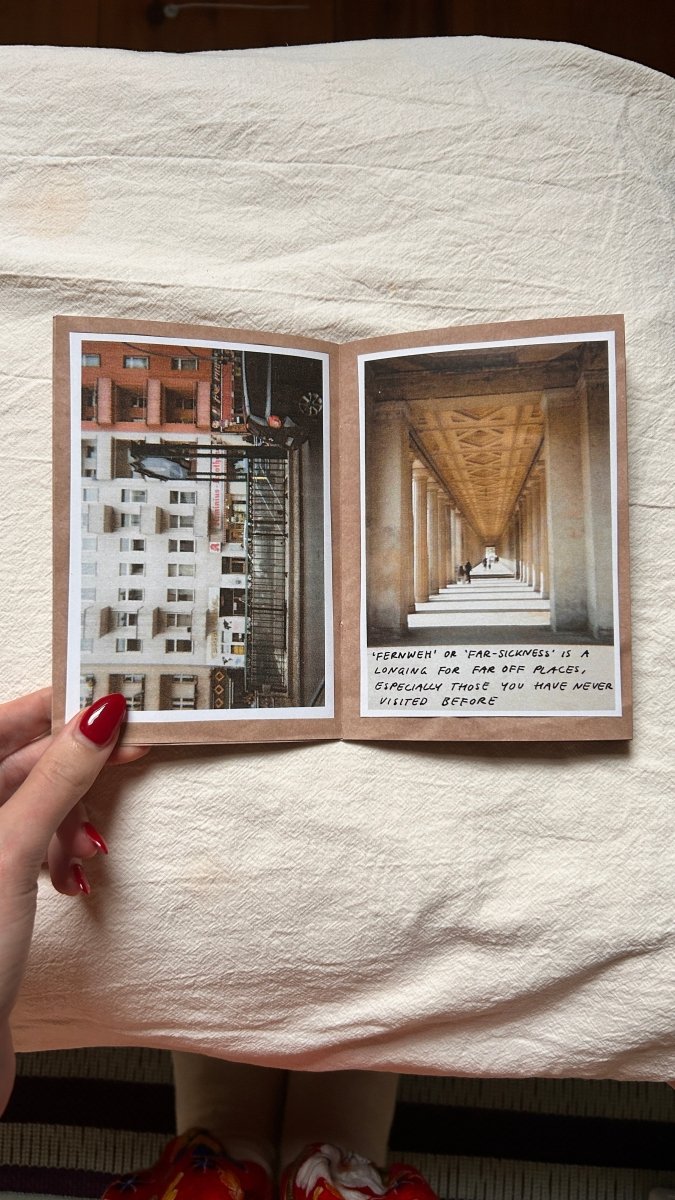 'FERNWEH' OR 'FAR-SICKNESS' IS A
LONGING FOR FAR OFF PLACES,
ESPECIALLY THOSE YOU HAVE NEVER
VISITED BEFORE